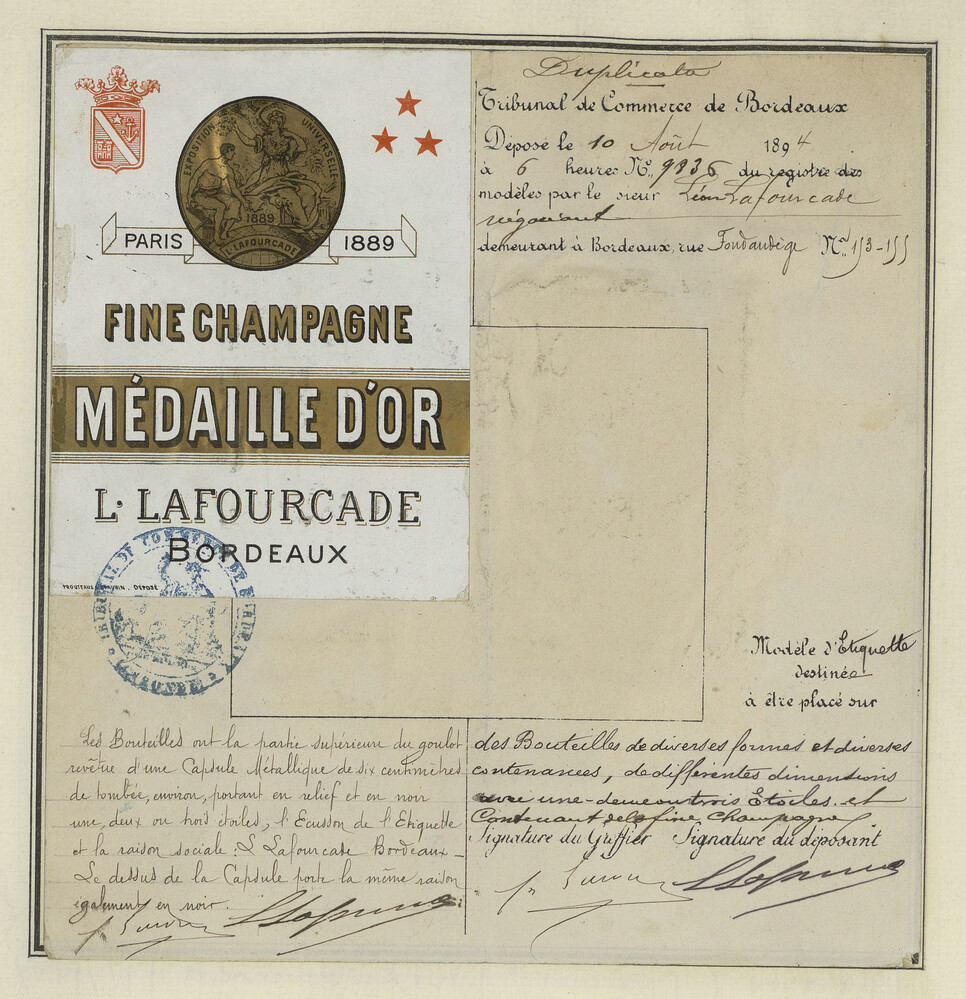 EXPOSITION UNIVERSELLE
1889
L. LAFOURCADE
PARIS 1889
FINE CHAMPAGNE
MÉDAILLE D'OR
L. LAFOURCADE
BORDEAUX
DÉPOSÉ
TRIBUNAL DE COMMERCE DE BORDEAUX
GIRONDE
Duplicata
Tribunal de Commerce de Bordeaux
Déposé le 10 Août 1894
à 6 heures No. 9836 du registre des
modèles par le sieur Léon Lafourcade
négociant
demeurant à Bordeaux, rue Fondaudège Nos. 153-155
Modèle d'Etiquette
destinée
à être placé sur
des Bouteilles de diverses formes et diverses
contenances, de différentes dimensions
avec une deux ou trois Etoiles et
Contenant de la fine champagne
Signature du Greffier Signature du déposant
Les Bouteilles ont la partie supérieure du goulot
revêtue d'une Capsule Métallique de six centimètres
de tombée, environ, portant en relief et en noir
une, deux ou trois étoiles, l'Ecusson de l'Etiquette
et la raison sociale: L Lafourcade Bordeaux_
Le dessus de la Capsule porte la même raison
également en noir.